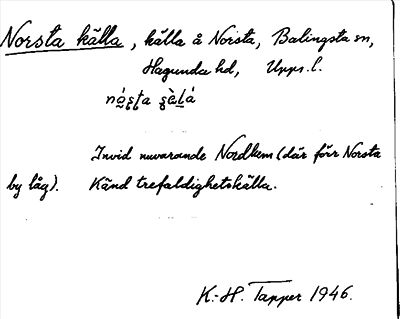 Norsta källa, källa å Norsta, Balingsta sn,
Hagunda hd, Upps. l.
Invid nuvarande Nordlum (där förr Norsta
by låg). Känd trefaldighetskälla.
K.-H. Tapper 1946.